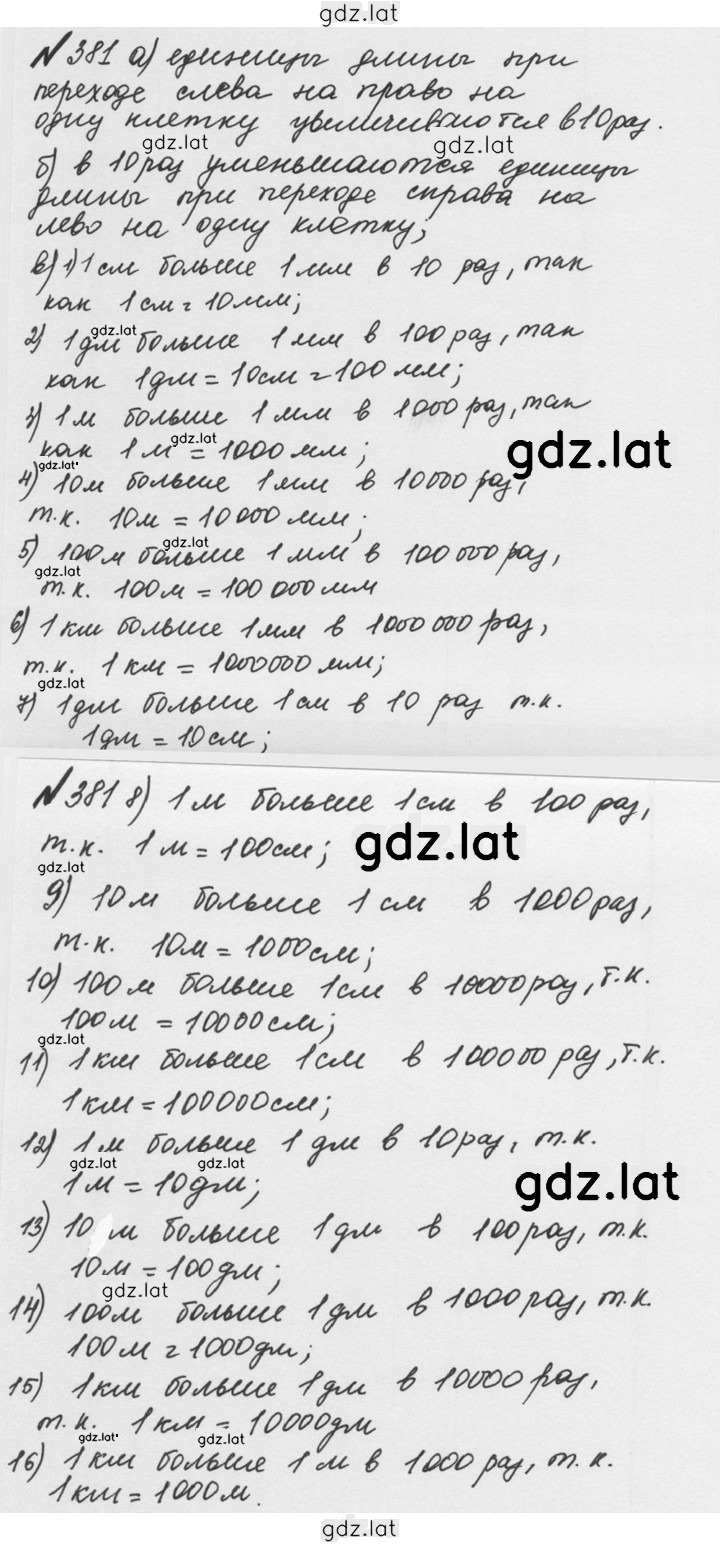 gdz.lat
№ 381 а) единицы длины при
переходе слева на право на
одну клетку увеличиваются в 10 раз.
gdz.lat gdz.lat
б) в 10 раз уменьшаются единицы
длины при переходе справа на
лево на одну клетку;
в) 1) 1 см больше 1 мм в 10 раз, так
как 1 см = 10 мм;
gdz.lat
2) 1 дм больше 1 мм в 100 раз, так
как 1 дм = 10 см = 100 мм;
3) 1 м больше 1 мм в 1000 раз, так
gdz.lat gdz.lat
как 1 м = 1000 мм;
gdz.lat
4) 10 м больше 1 мм в 10000 раз,
т.к. 10 м = 10000 мм;
gdz.lat
5) 100 м больше 1 мм в 100 000 раз,
gdz.lat
т.к. 100 м = 100 000 мм
6) 1 км больше 1 мм в 1000 000 раз,
т.к. 1 км = 1000000 мм;
gdz.lat
7) 1 дм больше 1 см в 10 раз т.к.
1 дм = 10 см;
№ 381 8) 1 м больше 1 см в 100 раз,
т.к. 1 м = 100 см; gdz.lat
gdz.lat
9) 10 м больше 1 см в 1000 раз,
т.к. 10 м = 1000 см;
10) 100 м больше 1 см в 10000 раз, т.к.
100 м = 10000 см;
gdz.lat
11) 1 км больше 1 см в 100000 раз, т.к.
1 км = 100000 см;
12) 1 м больше 1 дм в 10 раз, т.к.
gdz.lat gdz.lat gdz.lat
1 м = 10 дм;
13) 10 м больше 1 дм в 100 раз, т.к.
10 м = 100 дм;
gdz.lat
14) 100 м больше 1 дм в 1000 раз, т.к.
100 м = 1000 дм;
15) 1 км больше 1 дм в 10000 раз,
т.к. 1 км = 10000 дм
gdz.lat gdz.lat
16) 1 км больше 1 м в 1000 раз, т.к.
1 км = 1000 м.
gdz.lat